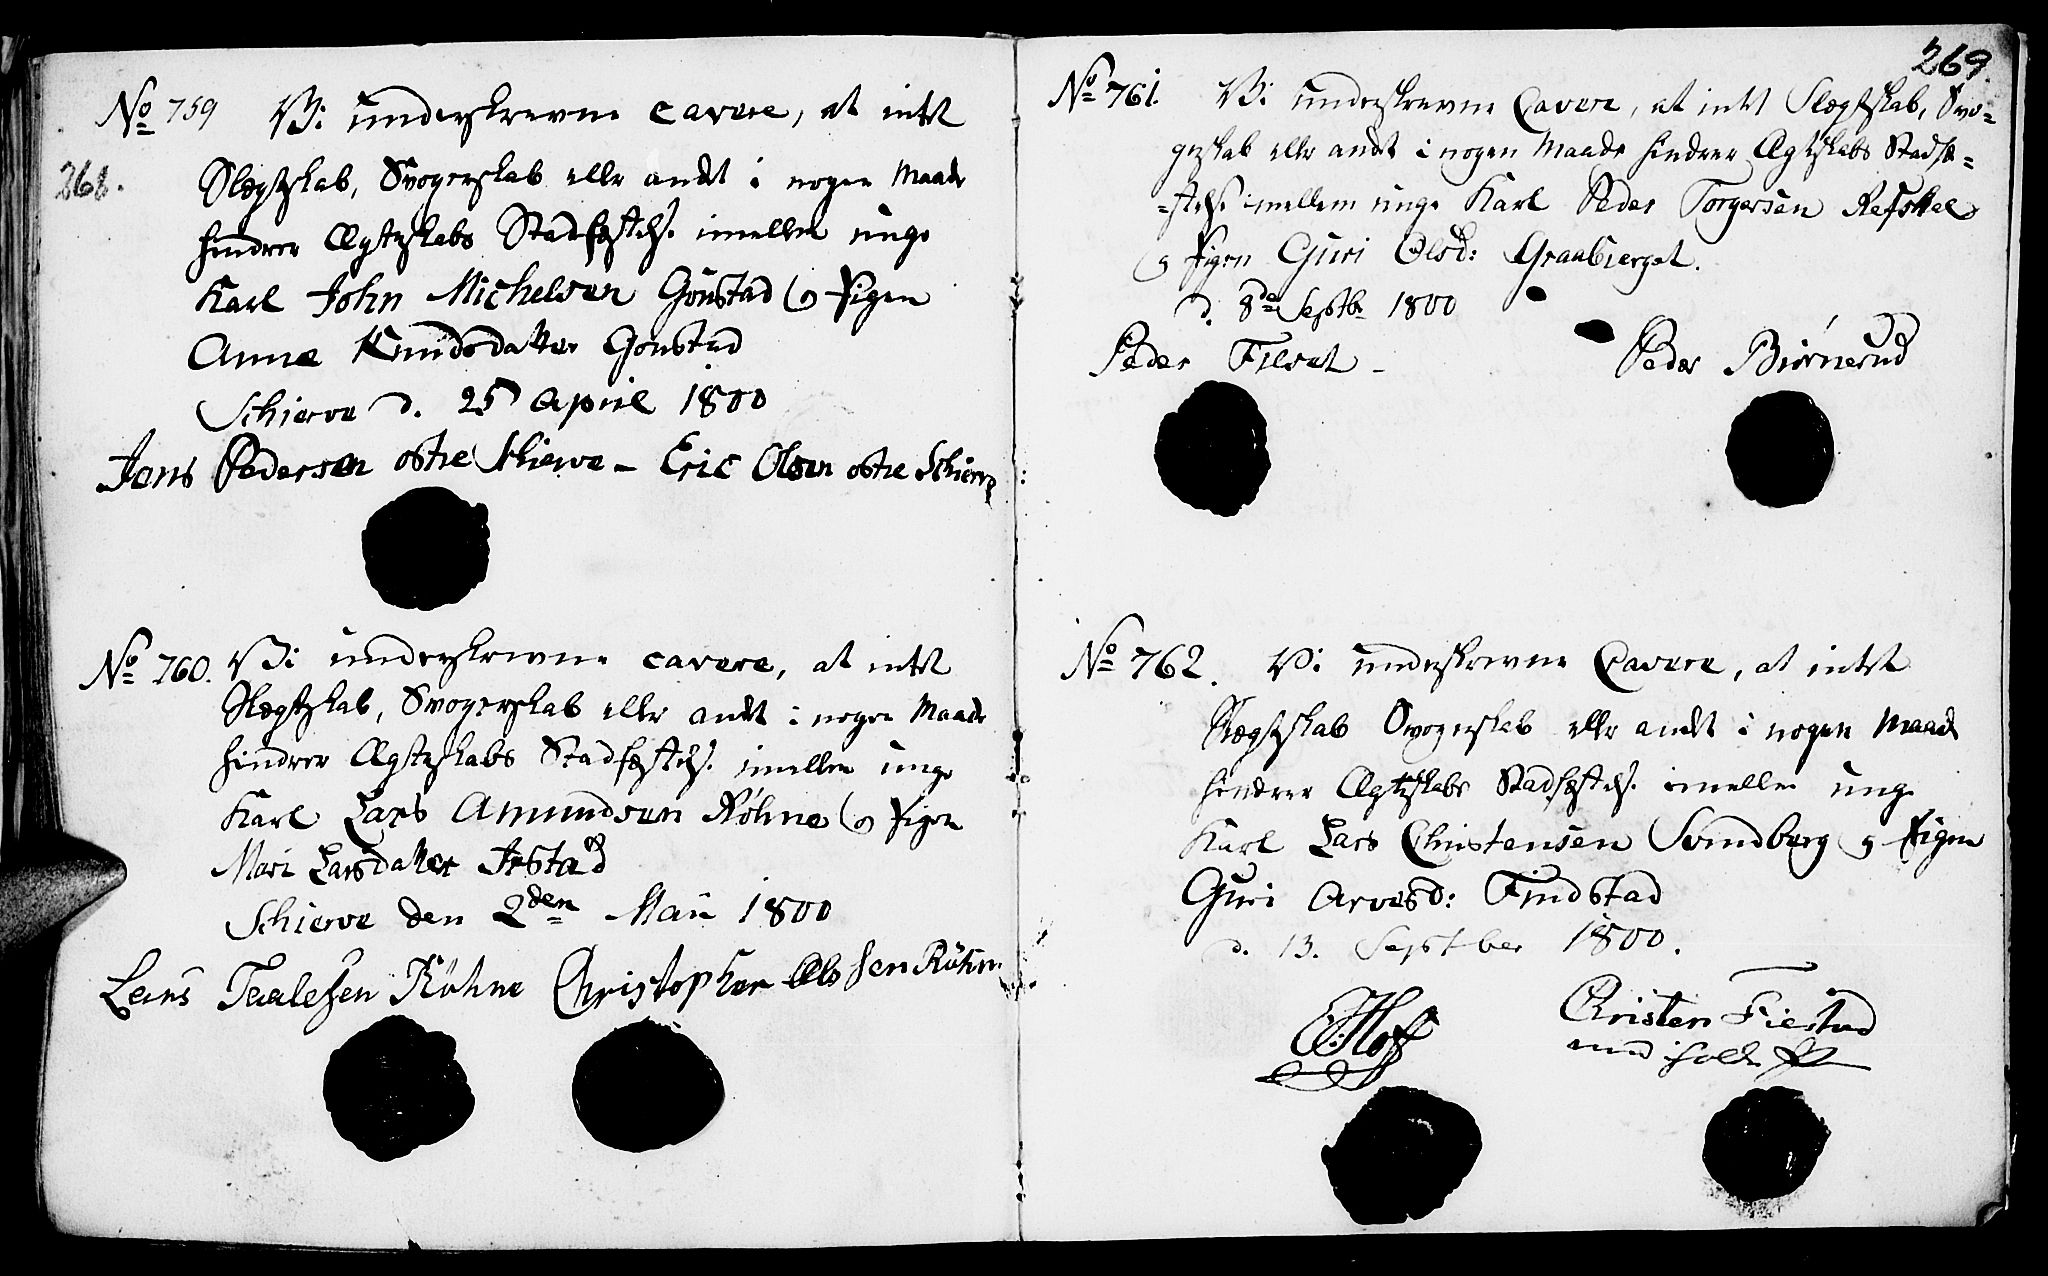 268.
No 759 Vi underskrevne cavere, at intet
Slægtskab, Svogerskab eller andet i nogen Maade
hindrer Ægteskabs Stadfæstelse imellem unge
Karl John Michelsen Gonstad og Pigen
Anne Knudsdatter Gonstad
Schierve d. 25 April 1800
Jens Pedersen østre Skierve – Eric Olsen østre Schierve
No 760. Vi underskrevne cavere, at intet
Slægtskab, Svogerskab eller andet i nogen Maade
hindrer Ægteskabs Stadfæstelse imellem unge
Karl Lars Amundsen Røhne og Pigen
Mari Larsdatter Ifstad
Schierve den 2den Maii 1800
Lars Taalefsen Røhne Christopher Olsen Røhne
269.
No 761. Vi underskrevne Cavere, at intet Slægtskab, Svo=
gerskab eller andet i nogen Maade hindrer Ægteskabs Stadfæ=
=stelse imellem unge Karl Peder Torgersen Refskal
og Pigen Guri Olsd: Graabierget.
d. 8de Septbr 1800
Peder Filset – Peder Biørnerud
No 762. Vi underskrevne Cavere, at intet
Slægtskab Svogerskab eller andet i nogen Maade
hindrer Ægteskabs Stadfæstelse imellem unge
Karl Lars Christensen Svindberg og Pigen
Guri Arvesd: Findstad
d. 13. September 1800.
E: Hoff Christen Fiestad
med iholden P